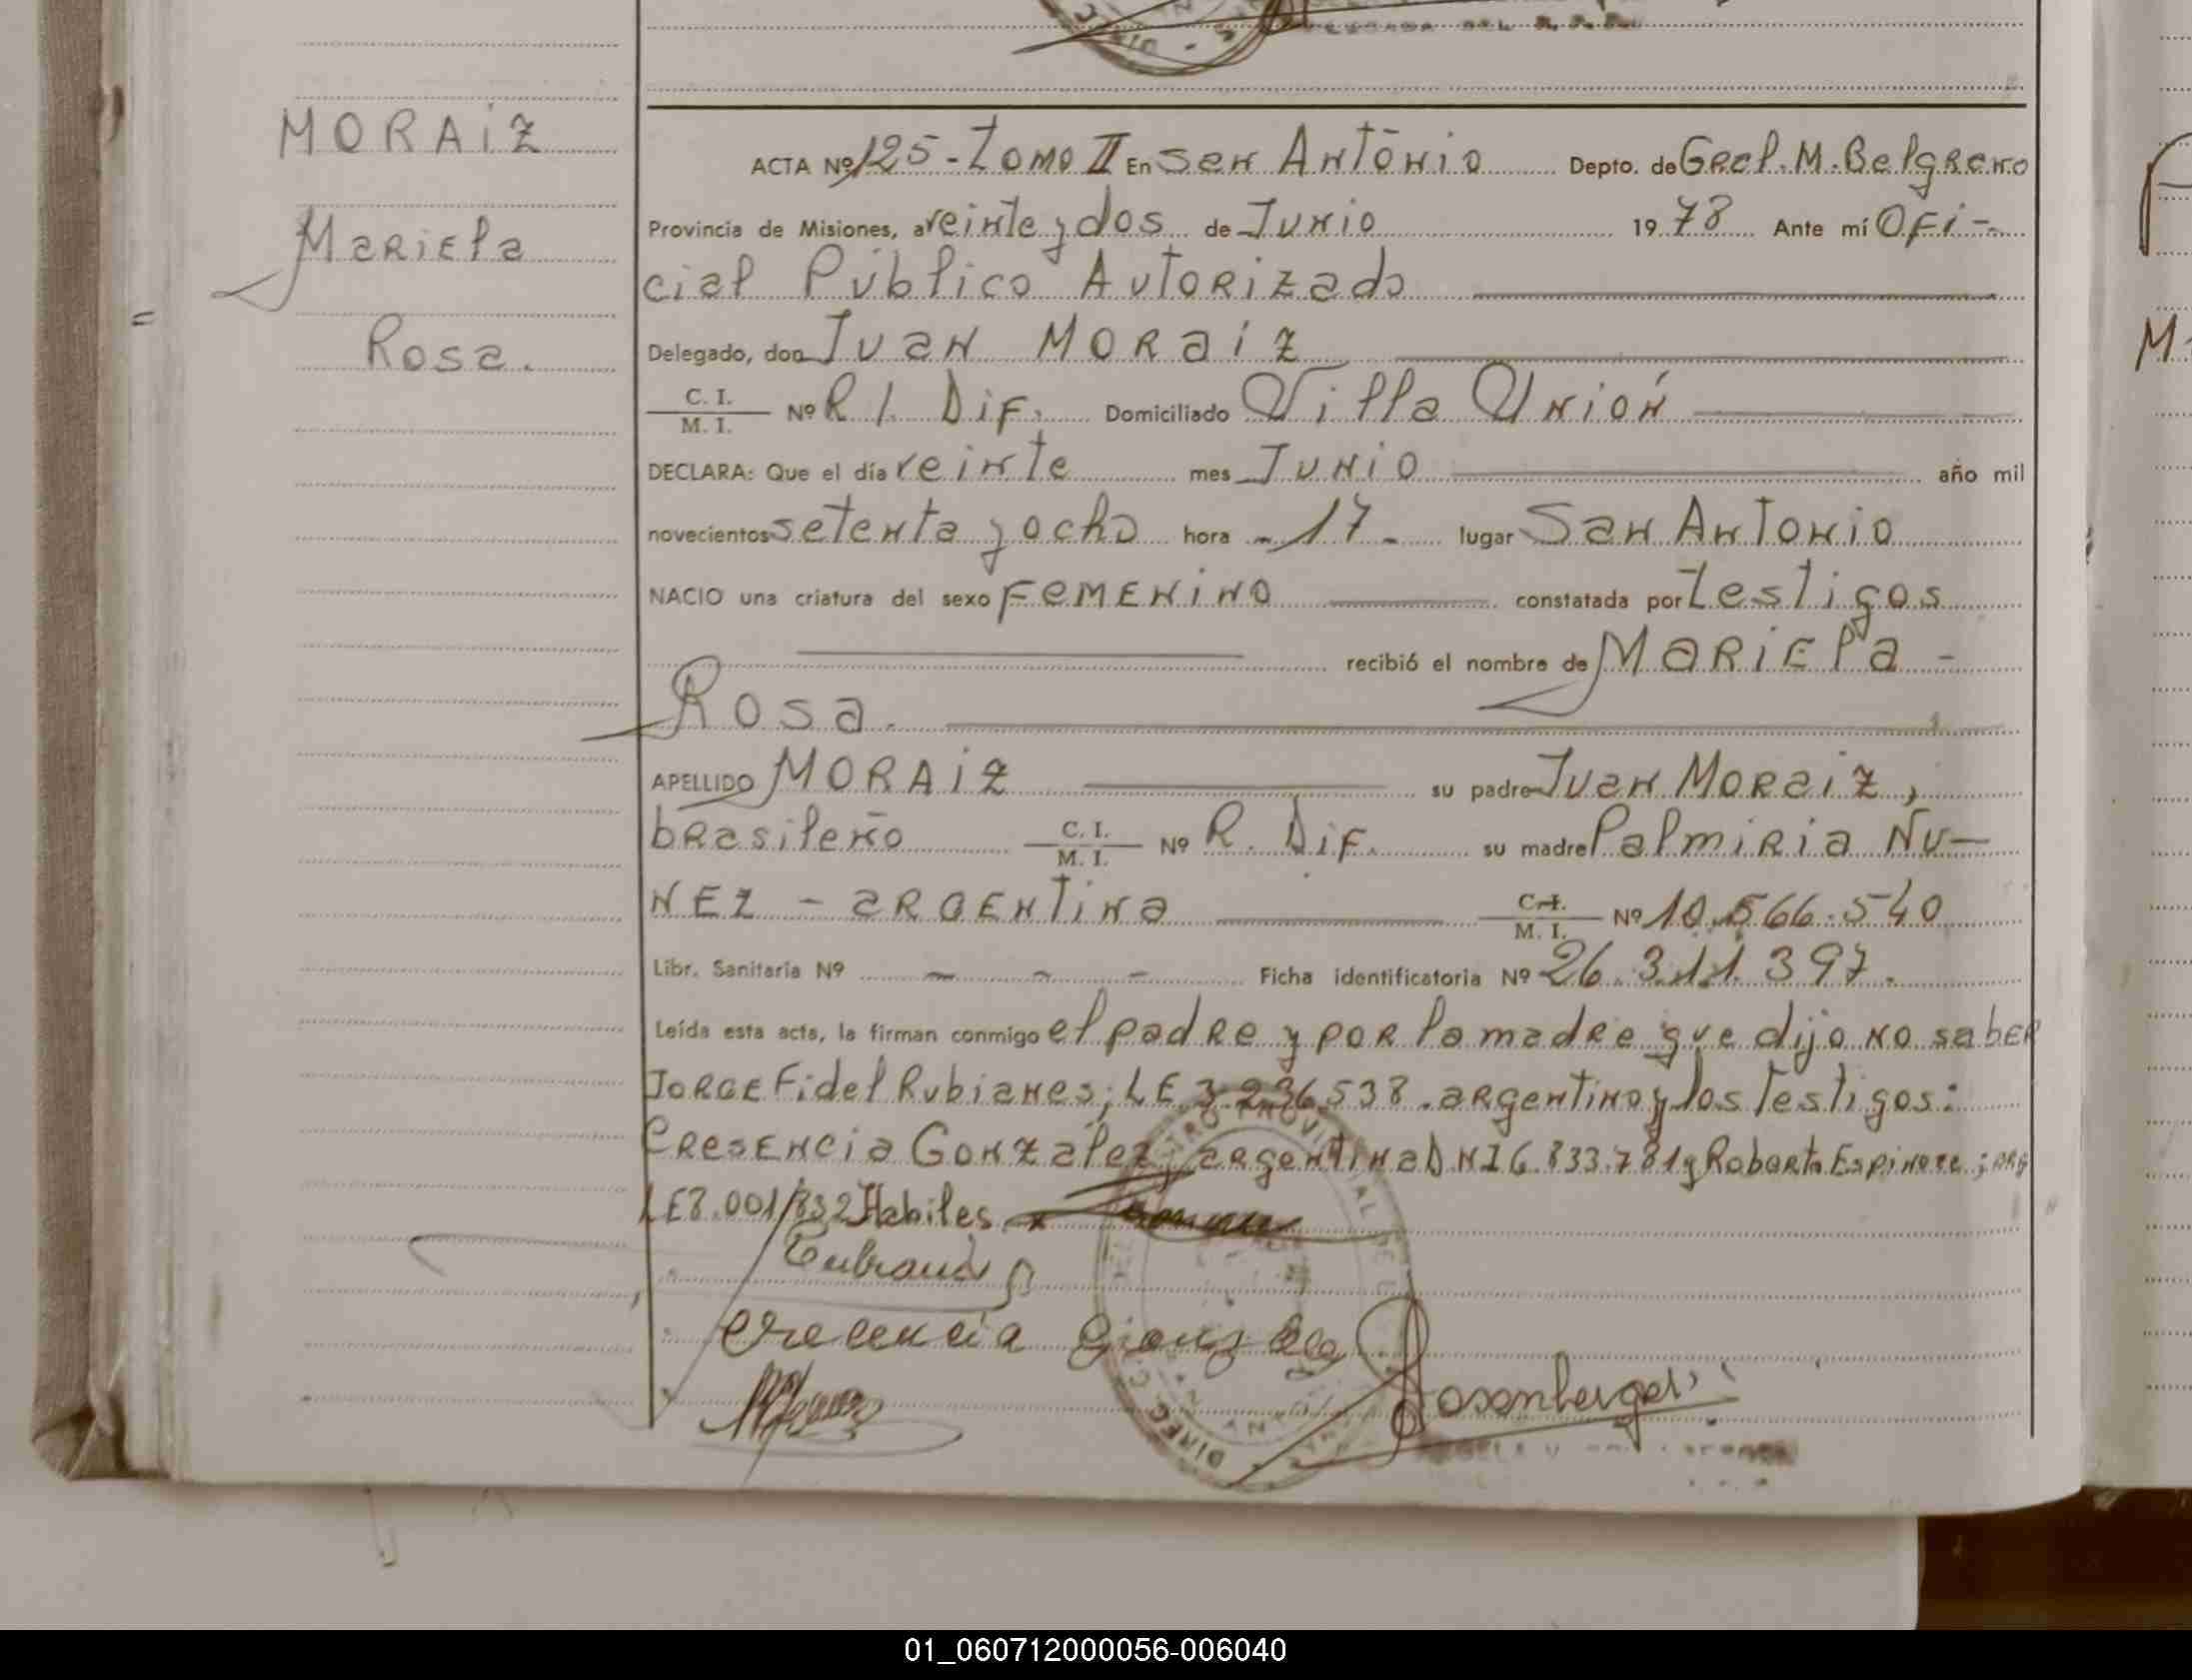 MORAIZ
Mariela
Rosa.
ACTA Nº 125 - Tomo II En San Antonio Depto. de Gral. M. Belgrano
Provincia de Misiones, a veinte y dos de Junio 1978 Ante mí Ofi-
cial Público Autorizado
Delegado, don Juan MORAIZ
C. I. / M. I. Nº R/. Dif. Domiciliado Villa Unión
DECLARA: Que el día veinte mes Junio año mil
novecientos setenta y ocho hora - 17 - lugar San Antonio
NACIO una criatura del sexo FEMENINO constatada por Testigos
recibió el nombre de MARIELA -
Rosa.
APELLIDO MORAIZ su padre Juan Moraiz,
brasileño C. I. / M. I. Nº R. Dif. su madre Palmiria Nu-
NEZ - ARGENTINA C. I. / M. I. Nº 10.566.540
Libr. Sanitaria Nº - - - Ficha identificatoria Nº 26.311.397.
Leída esta acta, la firman conmigo el padre y por la madre que dijo no saber
Jorge Fidel Rubianes; LE 3.236.538. argentino y los Testigos:
Cresencia González, argentina DNI 6.833.781 y Roberto Espinoze; arg
LE 8.001/832 Habiles
Crecencia Gonzalez
Rosenberger
01_060712000056-006040